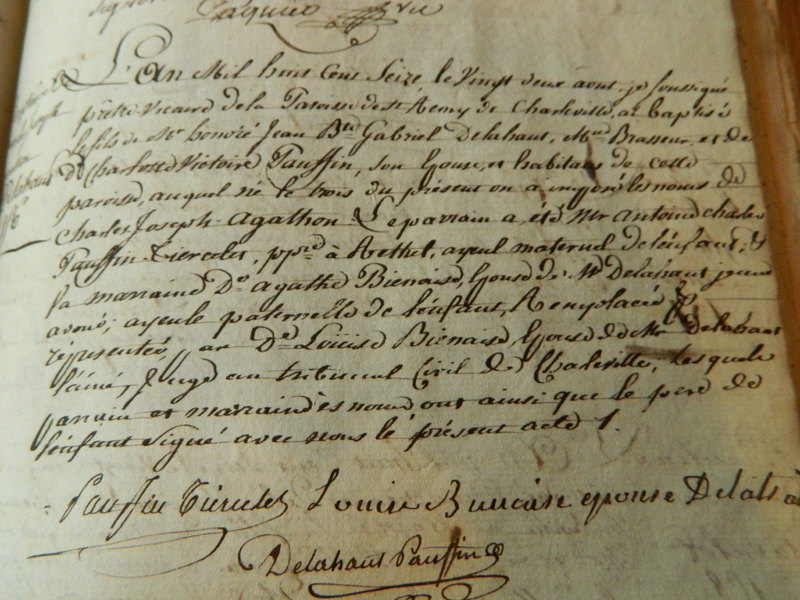 L'an Mil huit cent Seize, le Vingt deux aout, je soussigné
prêtre Vicaire de la Paroisse de St Remy de Charleville, ai baptisé
le fils de Mr honoré Jean Bte Gabriel Delahaut, Md Brasseur, et de
De Charlotte Victoire Pauffin, son Epouse, et habitans de cette
paroisse, auquel né le trois du présent on a imposé les noms de
Charles Joseph-Agathon. Le parrain a été Mr Antoine Charles
Pauffin-Tiercelet, ppre à Rethel, ayeul maternel de l'enfant, &
la marraine De agathe Bienaise, Epouse de Mr Delahaut jeune
avoué, ayeule paternelle de l'enfant, Remplacée &
réprésentée, par De Louise Bienaise, Epouse de Mr Delahaut
l'ainé, Juge au tribunal Civil de Chaleville, Lesquels
parrain et marraine es noms ont ainsi que le père de
l'enfant signé avec nous le présent acte.
Pauffin Tiercelet Louise Bienaise epouse
Delahaut Pauffin